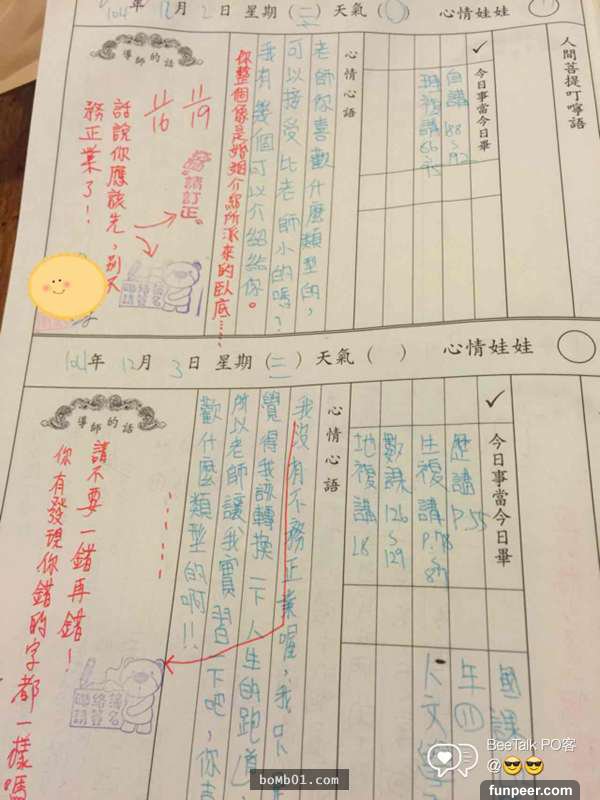 104年 12月 2日 星期(二) 天氣( ) 心情娃娃
人間菩提叮嚀語
✓ 今日事當今日畢
自講 188~192
理複講 66~75
心情心語
老師你喜歡什麼類型的，
可以接受比老師小的嗎？
我有幾個可以介紹給你。
你整個像是婚姻介紹所派來的臥底……
導師的話
11/19
11/16
請訂正
話說你應該先，別不
務正業了！
聯絡簿
請簽名
101年 12月 3日 星期(三) 天氣( ) 心情娃娃
✓ 今日事當今日畢
歷講 P.55
生複講 P.78~87
數課 126~129
地複講 18
國課
年⑪
人文
心情心語
我沒有不務正業喔，我只是
覺得我該轉換一下人生的跑道，
所以老師讓我實習一下吧，你喜
歡什麼類型的啊!!
導師的話
請不要一錯再錯！
你有發現你錯的字都一樣嗎
聯絡簿
請簽名
BeeTalk PO客
@😎😎
boMb01.com
funpeer.com